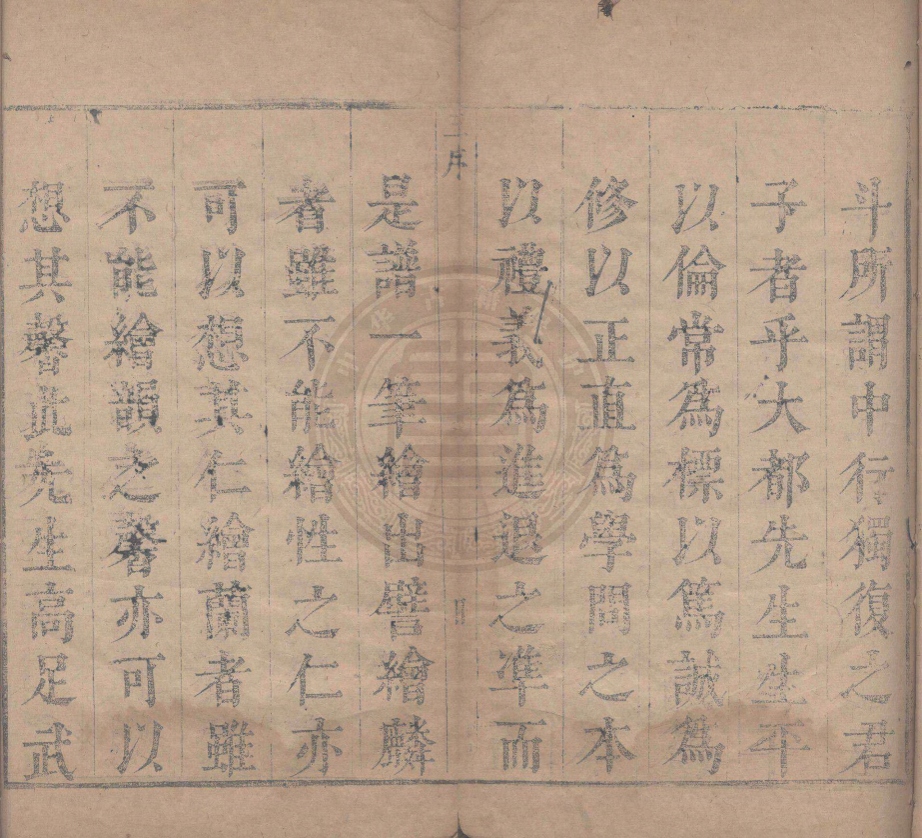 斗所謂中行獨復之君
子者乎大都先生生平
以倫常為標以篤誠為
修以正直為學問之本
以禮義為進退之準而
序
是譜一筆繪出譬繪麟
者雖不能繪性之仁亦
可以想其仁繪蘭者雖
不能繪韻之馨亦可以
想其馨此先生高足武